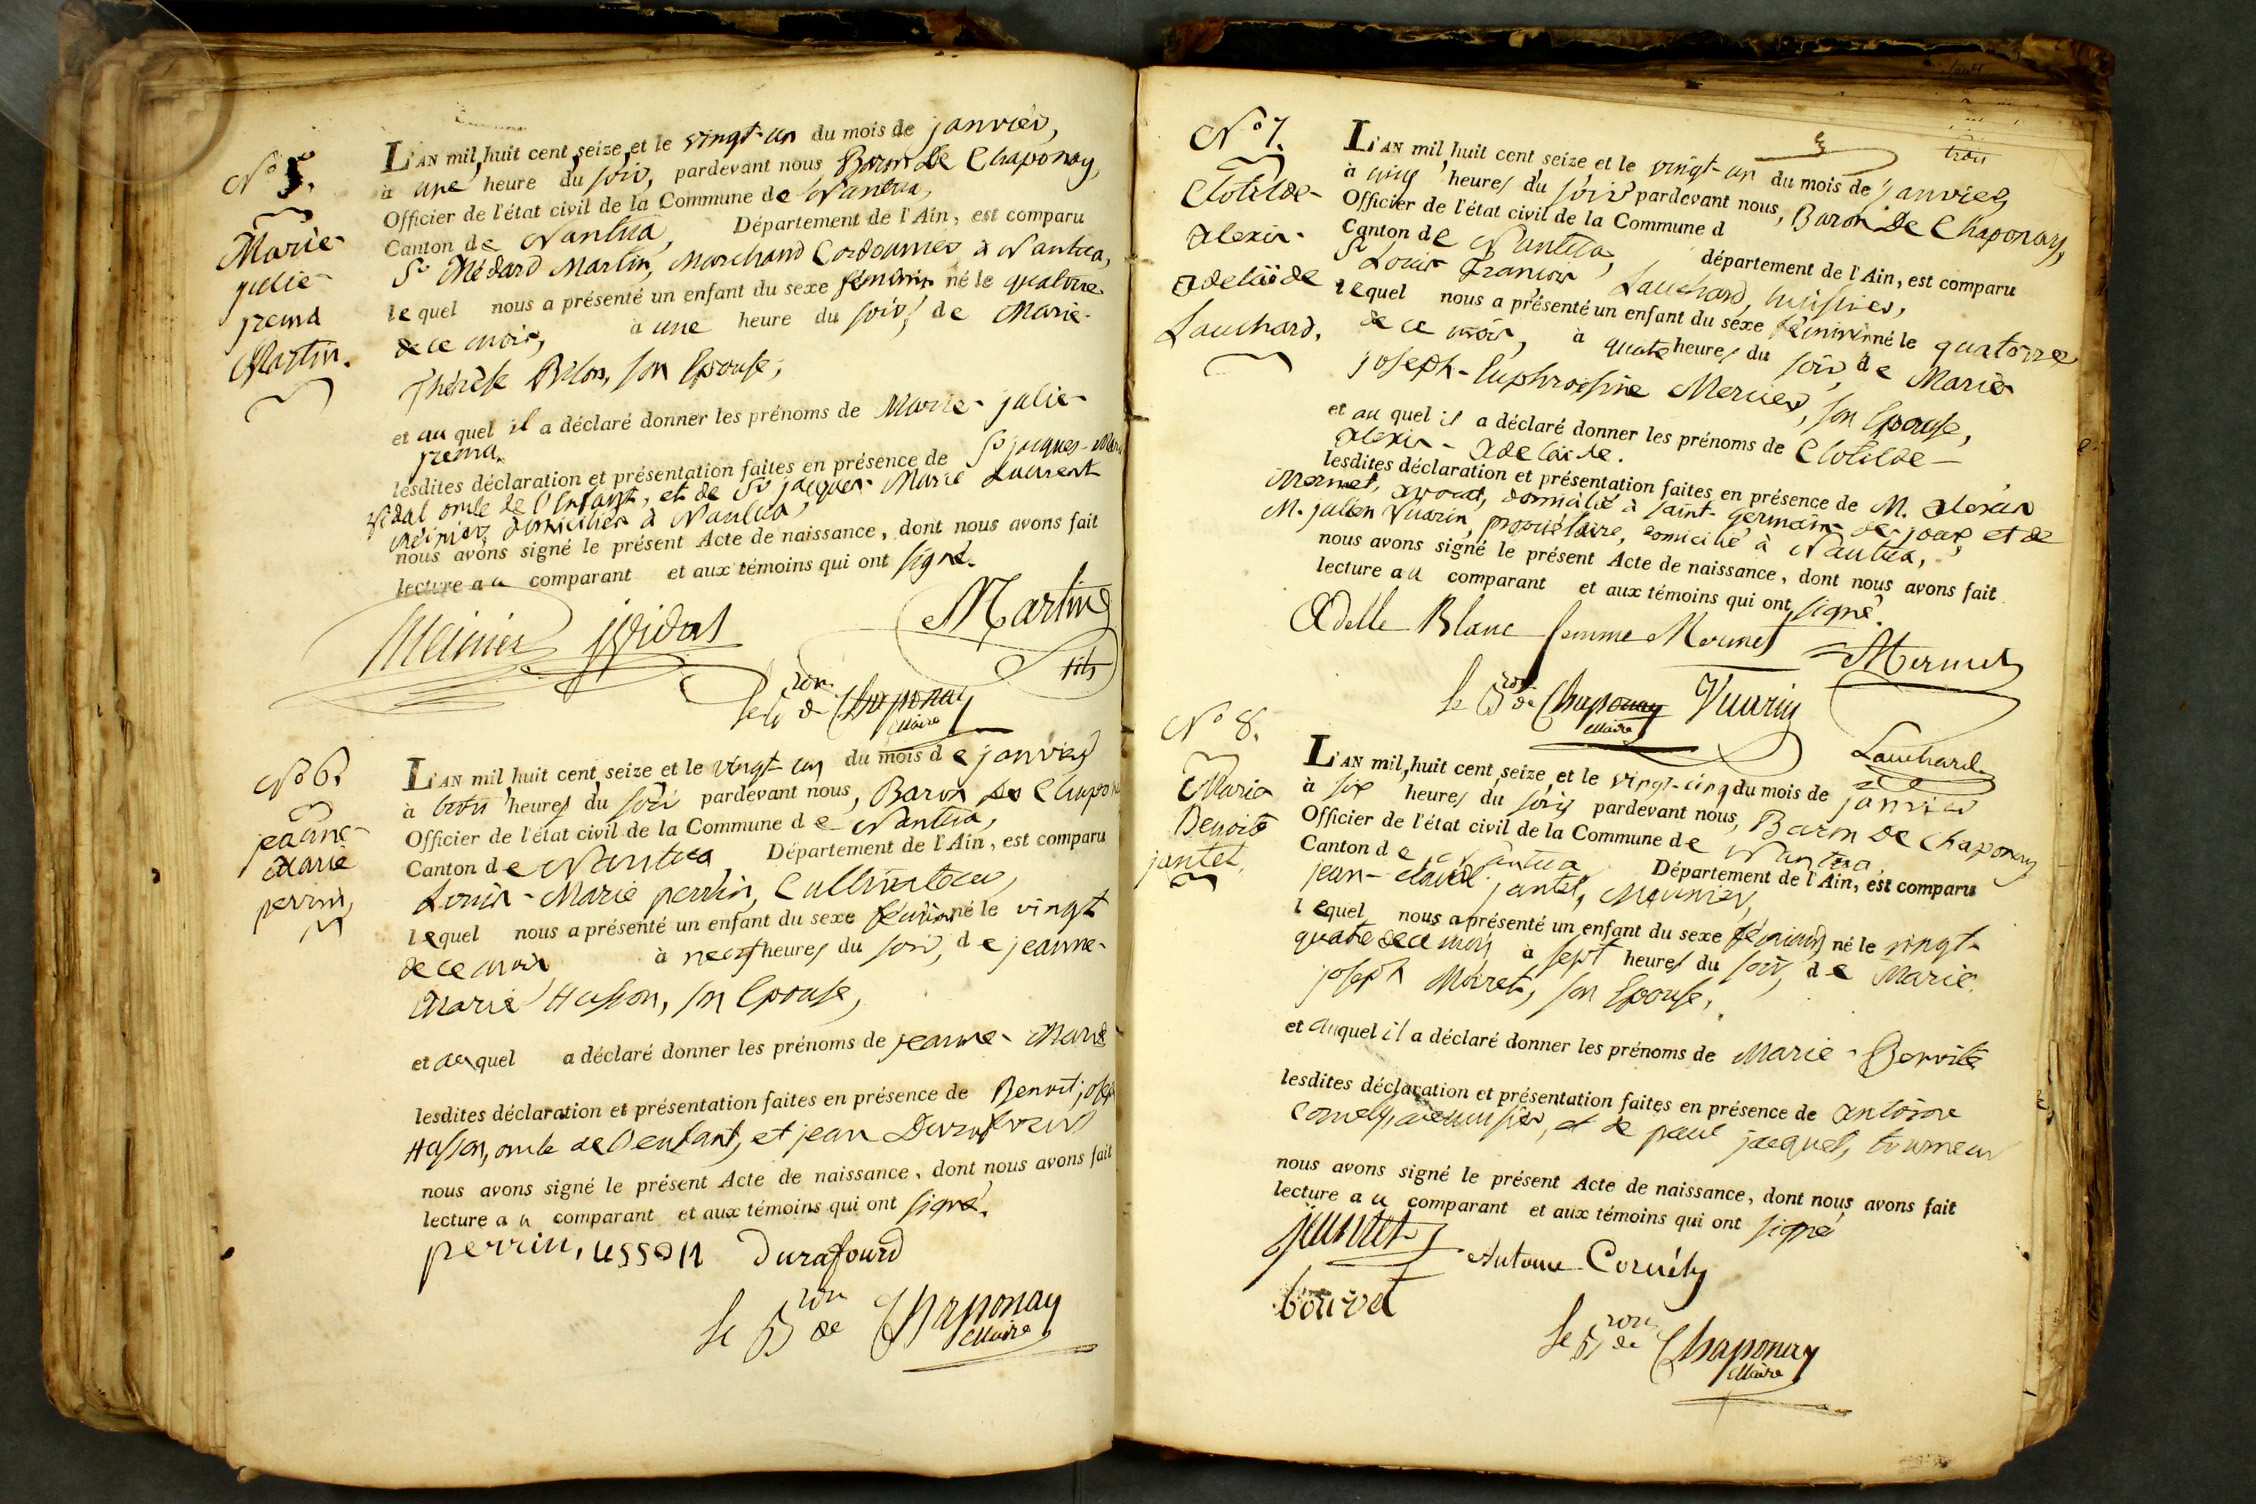 N° 5.
Marie
julie
Martin.
L'AN mil huit cent seize, et le vingt-un du mois de janvier,
à une heure du soir, pardevant nous Baron De Chaponay,
Officier de l'état civil de la Commune de Nantua,
Canton de Nantua, Département de l'Ain, est comparu
Sr Médard Martin, Marchand Cordonnier à Nantua,
lequel nous a présenté un enfant du sexe féminin né le quatorze
de ce mois, à une heure du soir, de Marie-
Thérèse son Epouse,
et auquel il a déclaré donner les prénoms de Marie-julie-
lesdites déclaration et présentation faites en présence de Sr jacques-
Vidal oncle de l'Enfant, et de Sr jacques Marie Laurent
Meinier, domiciliés à Nantua,
nous avons signé le présent Acte de naissance, dont nous avons fait
lecture au comparant et aux témoins qui ont signé.
Meinier jvidal Martin
fils
le Bron de Chaponay
Maire
N° 6.
jeanne-
Marie
perrin,
L'AN mil huit cent seize et le vingt-un du mois de janvier
à trois heures du soir pardevant nous, Baron De Chapona
Officier de l'état civil de la Commune de Nantua,
Canton de Nantua Département de l'Ain, est comparu
Louis-Marie perrin, Cultivateur,
lequel nous a présenté un enfant du sexe féminin né le vingt
de ce mois à neuf heures du soir, de jeanne-
Marie Husson, son Epouse,
et auquel a déclaré donner les prénoms de jeanne-Marie
lesdites déclaration et présentation faites en présence de Benoit joseph
Husson, oncle de l'enfant, et jean
nous avons signé le présent Acte de naissance, dont nous avons fait
lecture au comparant et aux témoins qui ont signé.
perrin, usson Durafourd
le Bron de Chaponay
Maire
trois
N° 7.
Clotilde-
alexis-
adelaïde
Lauchard.
L'AN mil huit cent seize et le vingt-un du mois de janvier
à cinq heures du soir pardevant nous, Baron De Chaponay,
Officier de l'état civil de la Commune d
Canton de Nantua, département de l'Ain, est comparu
Sr Louis François Lauchard, huissier,
lequel nous a présenté un enfant du sexe féminin né le quatorze
de ce mois, à quatre heures du soir, de Marie
joseph-Euphrosine Mercier, son Epouse,
et auquel il a déclaré donner les prénoms de Clotilde-
alexis-adelaide.
lesdites déclaration et présentation faites en présence de M. alexis
Mermet, avocat, domicilié à saint-germain-de-joux, et de
M. julien Vuarin, propriétaire, domicilié à Nantua,
nous avons signé le présent Acte de naissance, dont nous avons fait
lecture au comparant et aux témoins qui ont signé.
Adelle Blanc femme Mermet Mermet
le Bron de Chaponay Vuarin
Maire
Lauchard
N° 8.
Marie
Benoite
jantet.
L'AN mil huit cent seize et le vingt-cinq du mois de janvier
à six heures du soir pardevant nous, Baron De Chaponay
Officier de l'état civil de la Commune de Nantua,
Canton de Nantua Département de l'Ain, est comparu
jean-claude jantet, Meunier,
lequel nous a présenté un enfant du sexe féminin né le vingt-
quatre de ce mois à sept heures du soir, de Marie
joseph Moret, son Epouse,
et auquel il a déclaré donner les prénoms de Marie-Benoite
lesdites déclaration et présentation faites en présence de antoine
et de paul jacquet, tourneur
nous avons signé le présent Acte de naissance, dont nous avons fait
lecture au comparant et aux témoins qui ont signé
jeantet Antoine Cornély
bouvet
le Bron de Chaponay
Maire